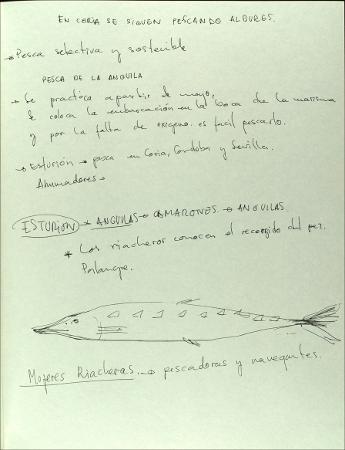 EN CORIA SE SIGUEN PESCANDO ALBURES.
→ Pesca selectiva y sostenible
PESCA DE LA ANGUILA
→ Se practica a partir de mayo,
se coloca la embarcación en la boca de la marisma
y por la falta de oxigeno es facil pescarlo.
→ Esturión → pesca en Coria, Cordoba y Sevilla.
Ahumadores →
ESTURION → ANGUILAS → CAMARONES → ANGUILAS.
* Los riacheros conocen el recorrido del pez.
Palangre.
Mujeres Riacheras → pescadoras y navegantes.